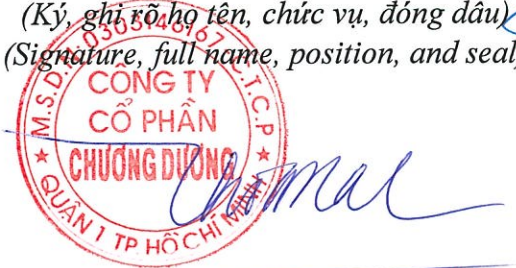 (Ký, ghi rõ họ tên, chức vụ, đóng dấu)
(Signature, full name, position, and seal)
M.S.D.N: 0303446167 C.T.C.P
CÔNG TY
CỔ PHẦN
CHƯƠNG DƯƠNG
QUẬN 1 TP HỒ CHÍ MINH